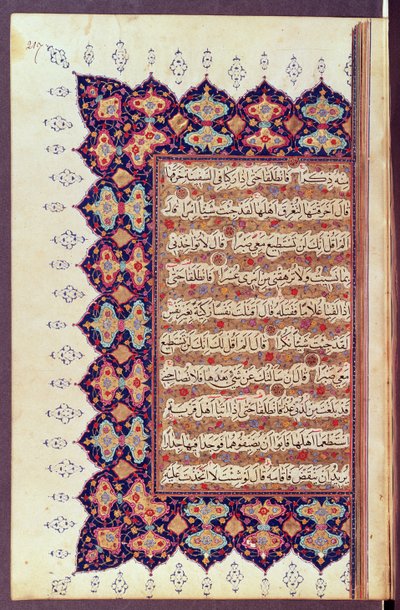 217
منه ذكرا فانطلقا حتى اذا ركبا فى السفينة خرقها
قال اخرقتها لتغرق اهلها لقد جئت شيئا امرا قال
الم اقل انك لن تستطيع معى صبرا قال لا تؤاخذنى
بما نسيت ولا ترهقنى من امرى عسرا فانطلقا حتى
اذا لقيا غلاما فقتله قال اقتلت نفسا زكية بغير نفس
لقد جئت شيئا نكرا قال الم اقل لك انك لن تستطيع
معى صبرا قال ان سألتك عن شئ بعدها فلا تصاحبنى
قد بلغت من لدنى عذرا فانطلقا حتى اذا اتيا اهل قرية
استطعما اهلها فابوا ان يضيفوهما فوجدا فيها جدارا
يريد ان ينقض فاقامه قال لو شئت لاتخذت عليه